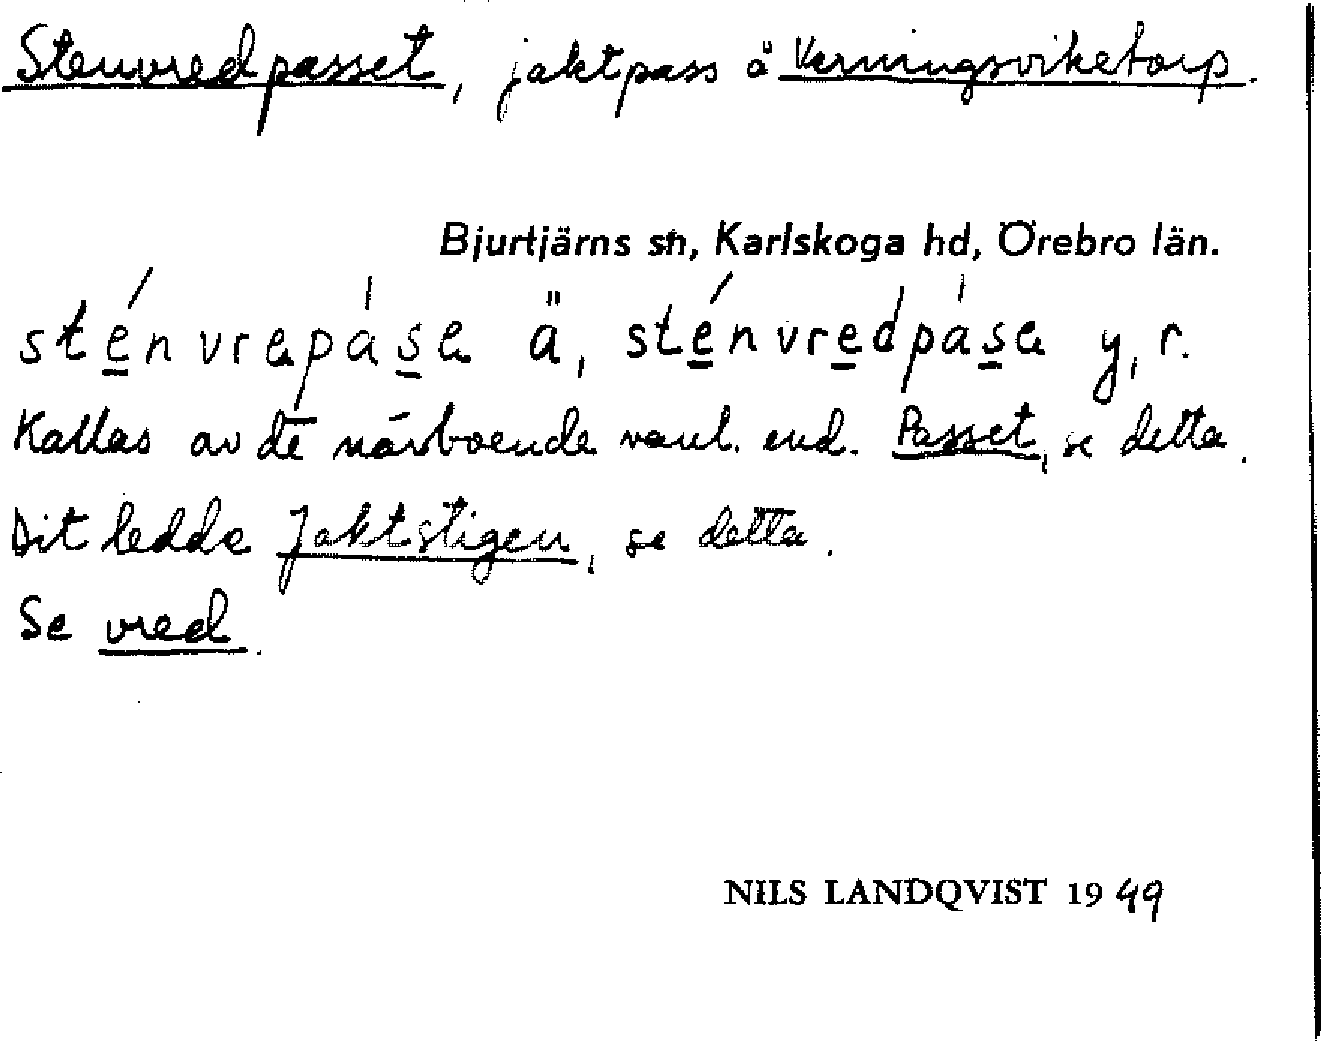 Stenvredpasset, jaktpass å Verningsviketorp.
Bjurtjärns sn, Karlskoga hd, Örebro län.
sténvrepása ä, sténvredpása y, r.
Kallas av de närboende vanl. end. Passet, se detta.
Dit ledde Jaktstigen, se detta.
Se vred.
NILS LANDQVIST 1949